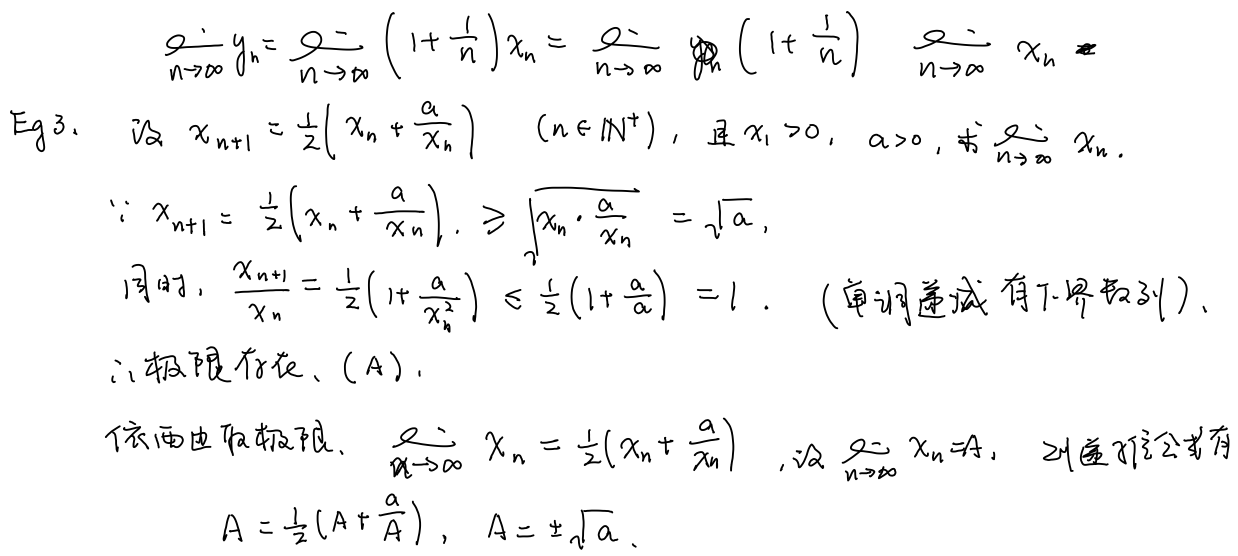 lim_{n→∞} y_n = lim_{n→∞} (1 + 1/n) x_n = lim_{n→∞} (1 + 1/n) lim_{n→∞} x_n
Eg 3. 设 x_{n+1} = 1/2 (x_n + a/x_n) (n ∈ ℕ⁺), 且 x_1 > 0, a > 0, 求 lim_{n→∞} x_n.
∵ x_{n+1} = 1/2 (x_n + a/x_n). ≥ √(x_n · a/x_n) = √a,
同时, x_{n+1}/x_n = 1/2 (1 + a/x_n²) ≤ 1/2 (1 + a/a) = 1. (单调递减有下界数列).
∴ 极限存在、(A).
两边取极限、 lim_{n→∞} x_n = 1/2 (x_n + a/x_n), 设 lim_{n→∞} x_n = A, 则递推公式有
A = 1/2 (A + a/A), A = ±√a.